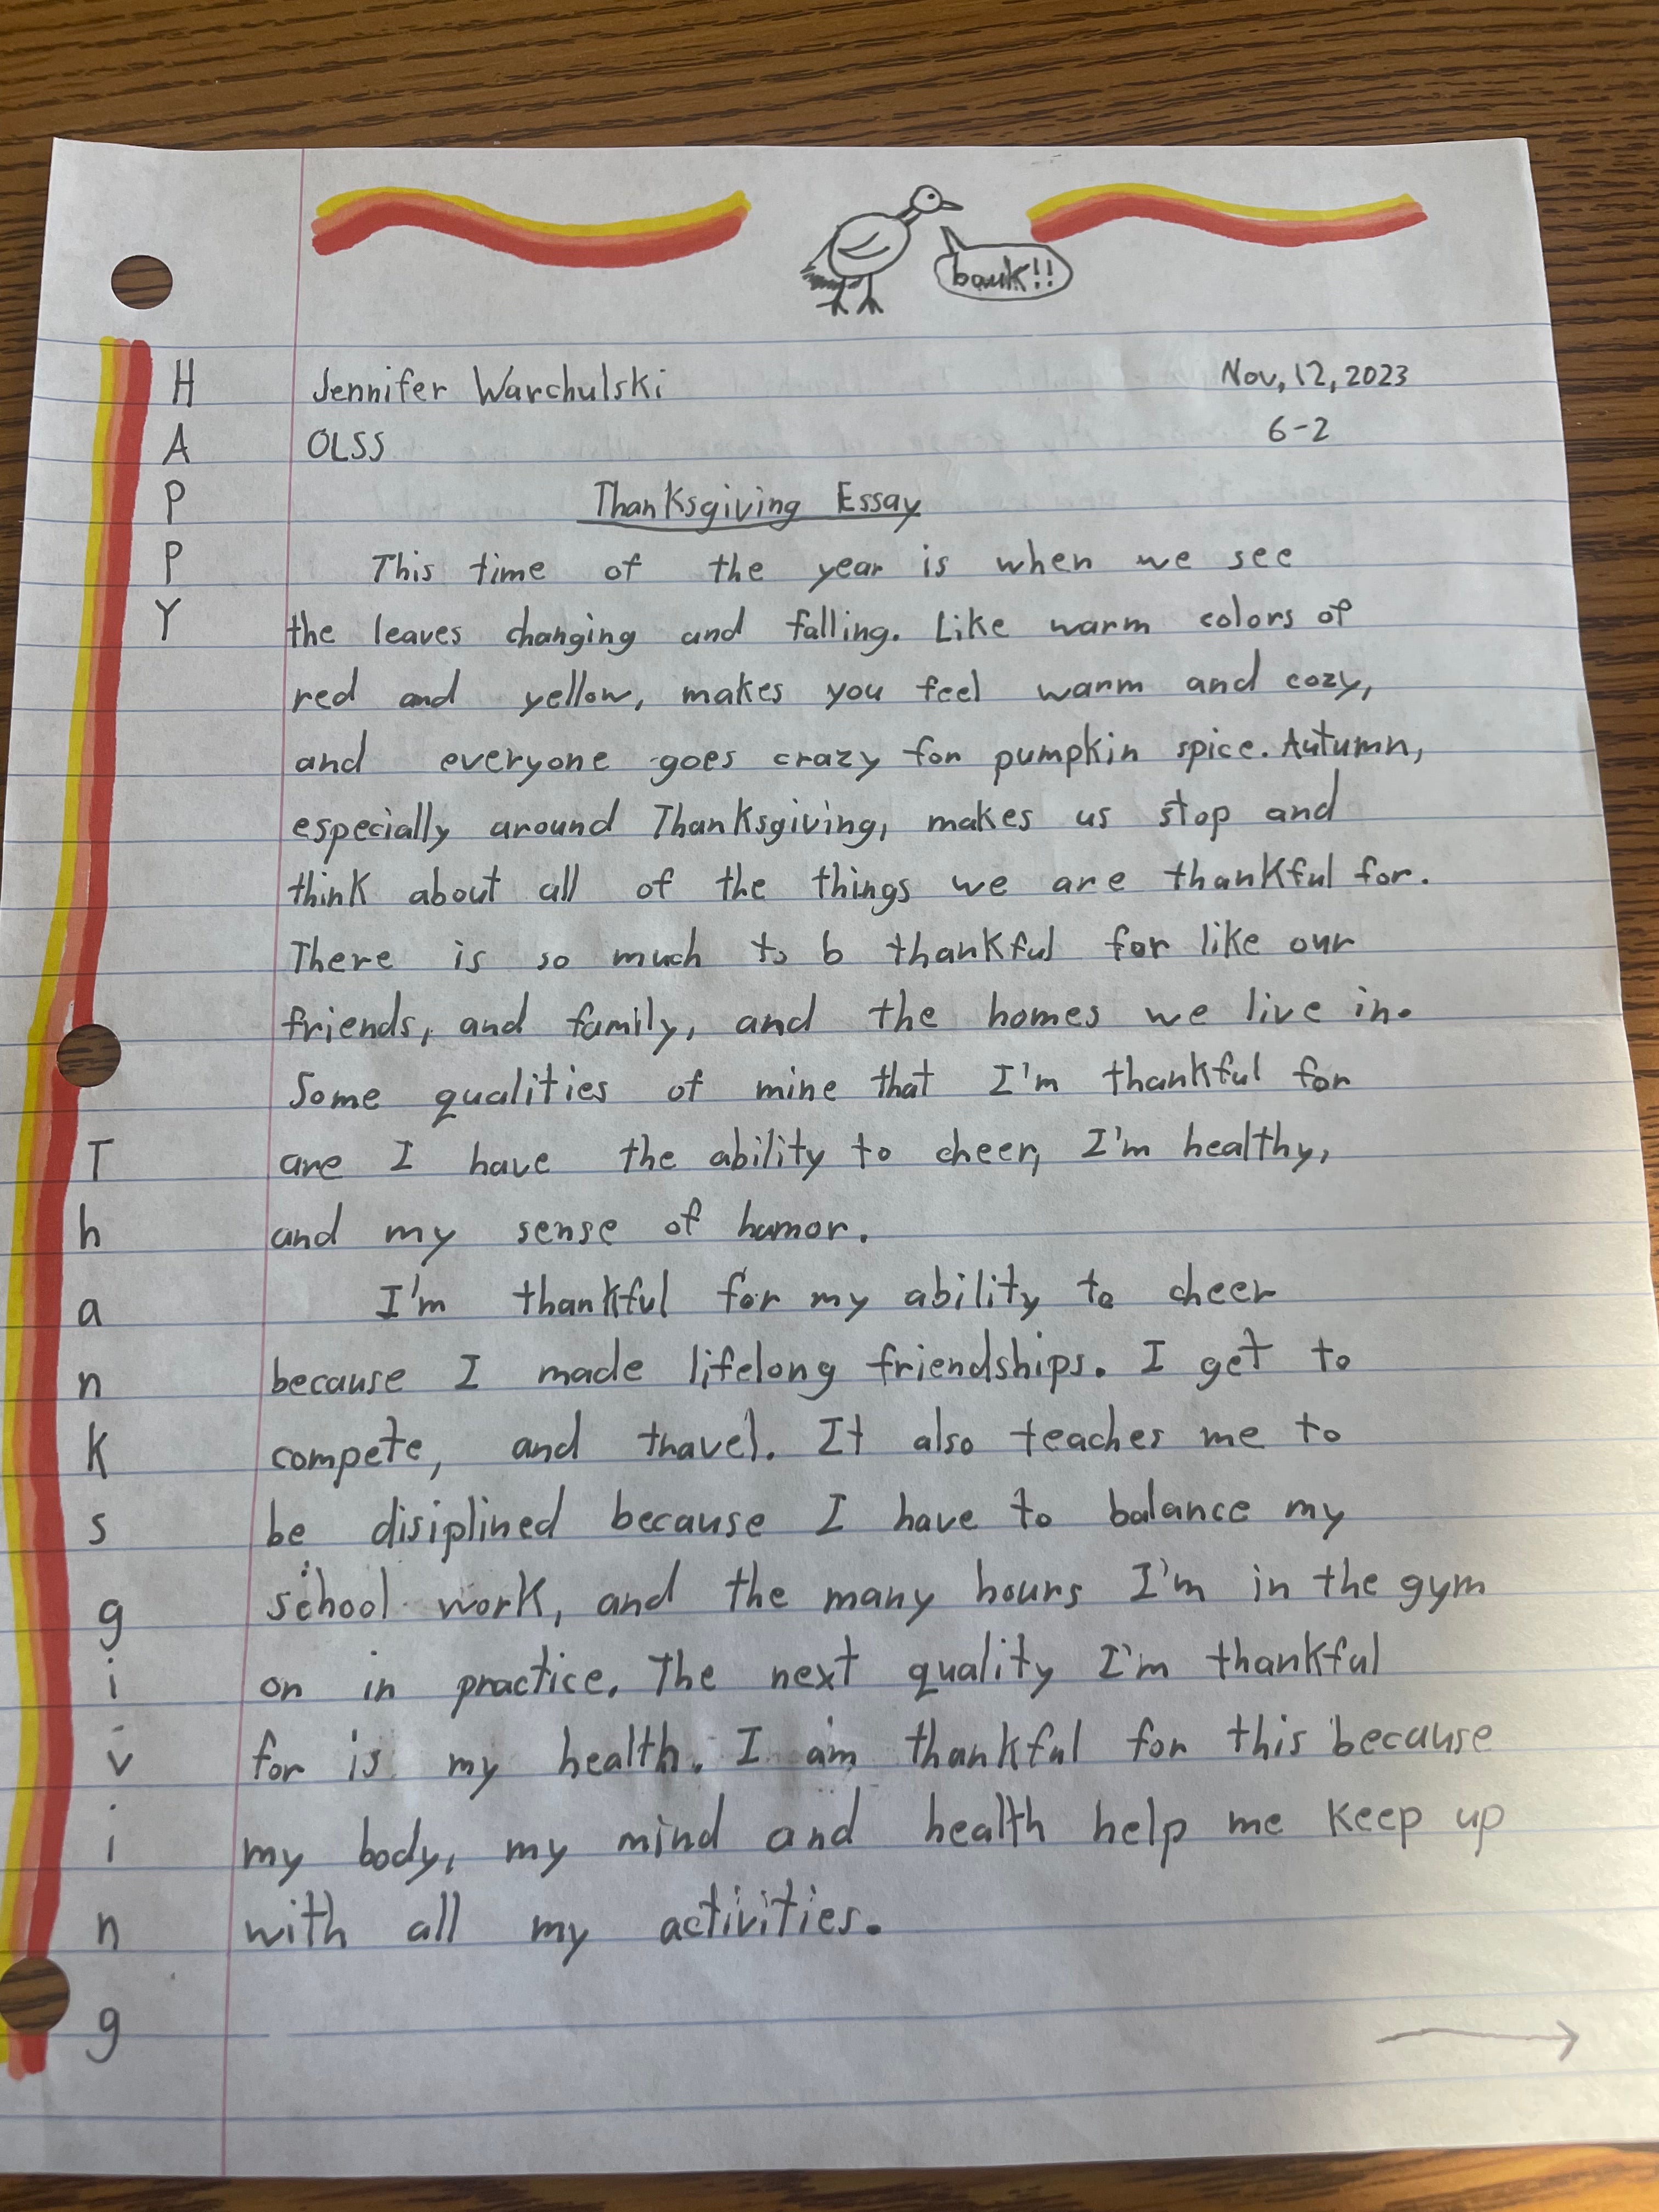 bauk!!
Jennifer Warchulski Nov, 12, 2023
OLSS 6-2
Thanksgiving Essay
This time of the year is when we see
the leaves changing and falling. Like warm colors of
red and yellow, makes you feel warm and cozy,
and everyone goes crazy for pumpkin spice. Autumn,
especially around Thanksgiving, makes us stop and
think about all of the things we are thankful for.
There is so much to b thankful for like our
friends, and family, and the homes we live in.
Some qualities of mine that I'm thankful for
are I have the ability to cheer, I'm healthy,
and my sense of humor.
I'm thankful for my ability to cheer
because I made lifelong friendships. I get to
compete, and travel. It also teaches me to
be disiplined because I have to balance my
school work, and the many hours I'm in the gym
on in practice. The next quality I'm thankful
for is my health. I am thankful for this because
my body, my mind and health help me keep up
with all my activities.
H
A
P
P
Y
T
h
a
n
k
s
g
i
v
i
n
g